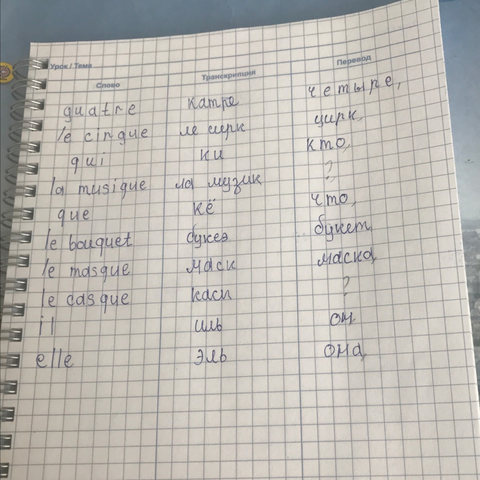 Урок / Тема
Слово Транскрипция Перевод
quatre катре четыре,
le cinque ле сирк цирк,
qui ки кто,
la musique ла музик ?
que кё что,
le bouquet букеэ букет
le masque маск маска
le casque каск ?
il иль он
elle эль она